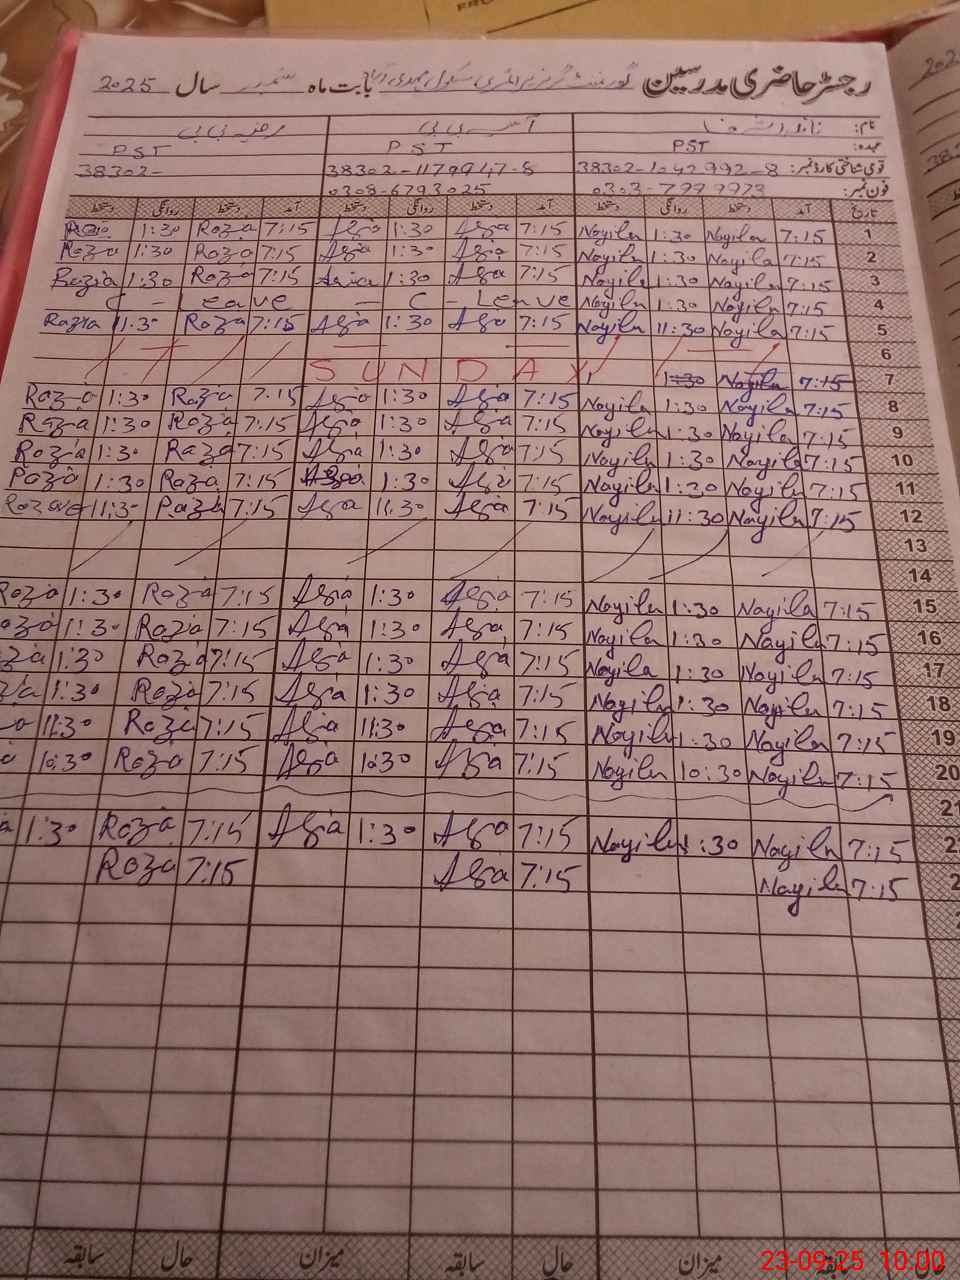 رجسٹر حاضری مدرسین گورنمنٹ گرلز پرائمری سکول بابت ماہ ستمبر سال 2025
نام: آسیہ بی بی رضیہ بی بی
عہدہ: PST PST PST
قومی شناختی کارڈ نمبر: 38302-1042992-8 38302-1179947-8 38302-
فون نمبر: 0303-7999973 0308-6793025
تاریخ آمد دستخط روانگی دستخط آمد دستخط روانگی دستخط آمد دستخط روانگی دستخط
1 7:15 Nayila 1:30 Nayila 7:15 Asia 1:30 Asia 7:15 Roza 1:30 Roza
2 7:15 Nayila 1:30 Nayila 7:15 Asia 1:30 Asia 7:15 Roza 1:30 Roza
3 7:15 Nayila 1:30 Nayila 7:15 Asia 1:30 Asia 7:15 Roza 1:30 Razia
4 7:15 Nayila 1:30 Nayila C - Leave C - Leave
5 7:15 Nayila 11:30 Nayila 7:15 Asia 1:30 Asia 7:15 Roza 11:30 Razia
6
7 7:15 Nayila 1:30 SUNDAY
8 7:15 Nayila 1:30 Nayila 7:15 Asia 1:30 Asia 7:15 Roza 1:30 Roza
9 7:15 Nayila 1:30 Nayila 7:15 Asia 1:30 Asia 7:15 Roza 1:30 Roza
10 7:15 Nayila 1:30 Nayila 7:15 Asia 1:30 Asia 7:15 Roza 1:30 Roza
11 7:15 Nayila 1:30 Nayila 7:15 Asia 1:30 Asia 7:15 Roza 1:30 Roza
12 7:15 Nayila 11:30 Nayila 7:15 Asia 11:30 Asia 7:15 Roza 11:30
13
14
15 7:15 Nayila 1:30 Nayila 7:15 Asia 1:30 Asia 7:15 Roza 1:30 Roza
16 7:15 Nayila 1:30 Nayila 7:15 Asia 1:30 Asia 7:15 Roza 1:30
17 7:15 Nayila 1:30 Nayila 7:15 Asia 1:30 Asia 7:15 Roza 1:30
18 7:15 Nayila 1:30 Nayila 7:15 Asia 1:30 Asia 7:15 Roza 1:30
19 7:15 Nayila 1:30 Nayila 7:15 Asia 11:30 Asia 7:15 Roza 11:30
20 7:15 Nayila 10:30 Nayila 7:15 Asia 10:30 Asia 7:15 Roza 10:30
21
7:15 Nayila 1:30 Nayila 7:15 Asia 1:30 Asia 7:15 Roza 1:30
7:15 Nayila 7:15 Asia 7:15 Roza
حال سابقہ میزان حال سابقہ میزان حال سابقہ
23-09-25 10:00